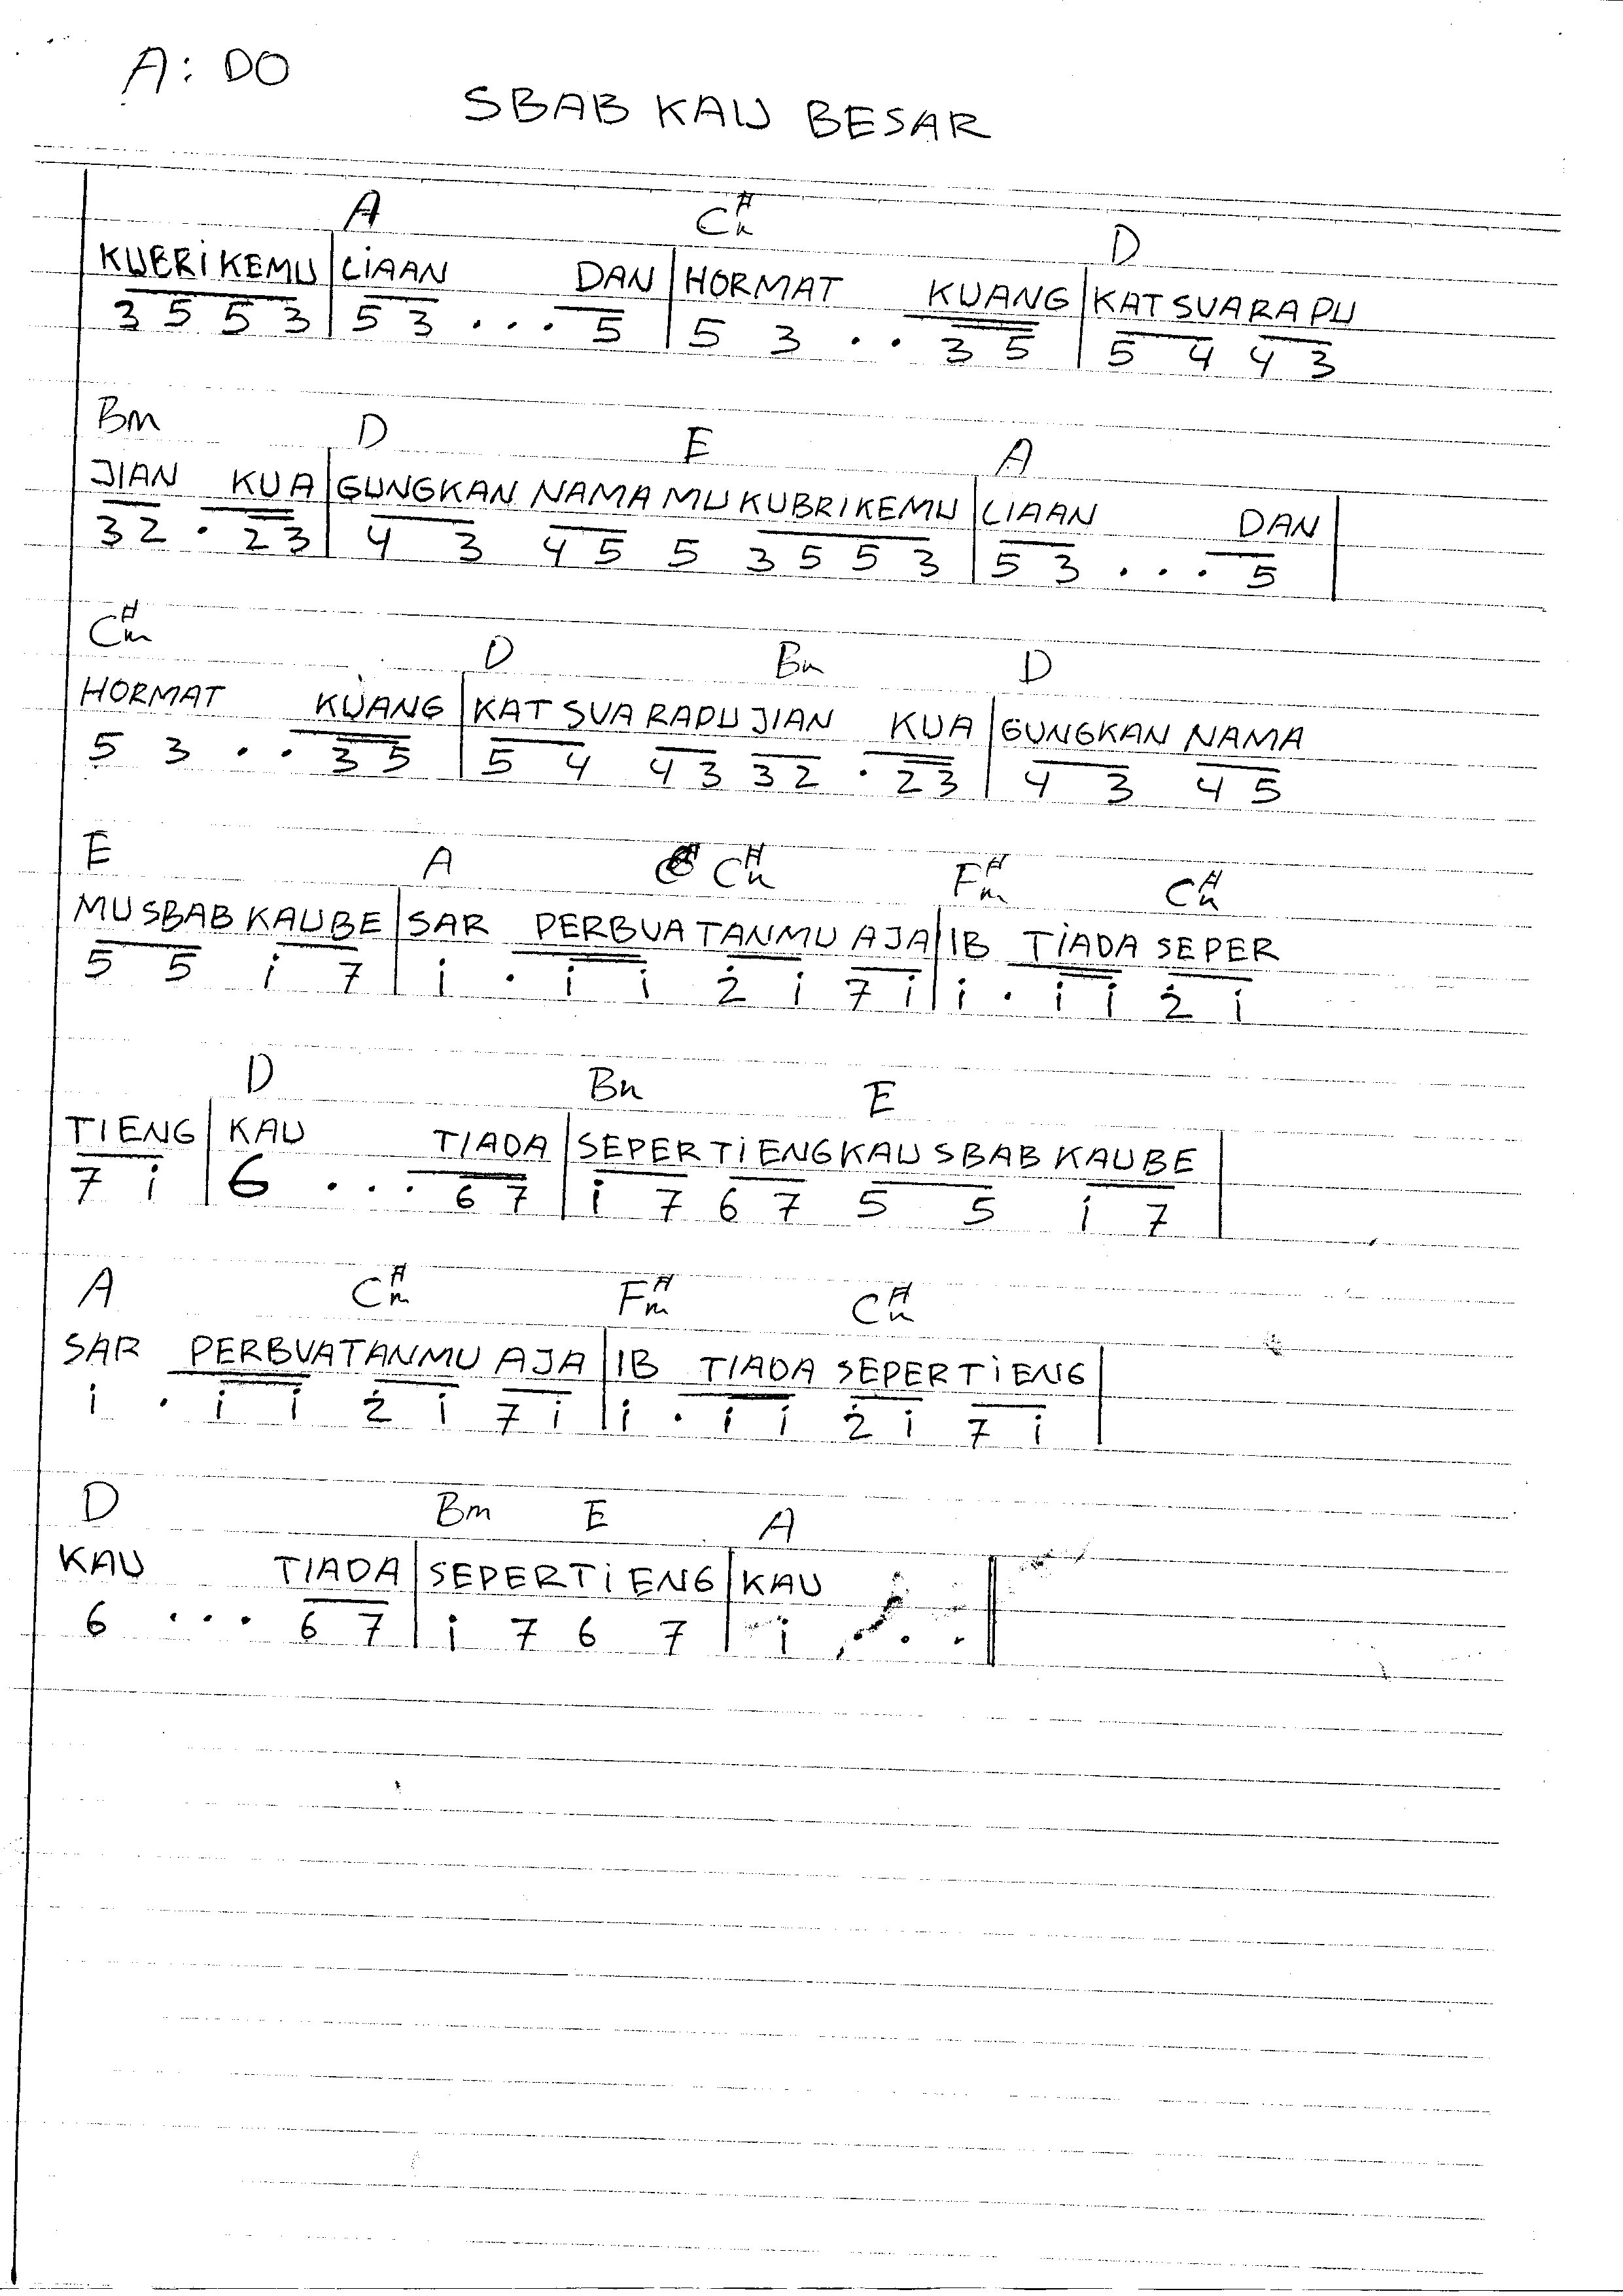 A: DO
SBAB KAU BESAR
A C#m D
KUBRIKEMU | LIAAN DAN | HORMAT KUANG | KAT SUARAPU
3 5 5 3 | 5 3 . . . 5 | 5 3 . . 3 5 | 5 4 4 3
Bm D E A
JIAN KUA | GUNGKAN NAMAMU KUBRIKEMU | LIAAN DAN |
3 2 . 2 3 | 4 3 4 5 5 3 5 5 3 | 5 3 . . . 5 |
C#m D Bm D
HORMAT KUANG | KAT SUARAPUJIAN KUA | GUNGKAN NAMA
5 3 . . 3 5 | 5 4 4 3 3 2 . 2 3 | 4 3 4 5
E A C#m F#m C#m
MU SBAB KAUBE | SAR PERBUATANMU AJA | IB TIADA SEPER
5 5 i 7 | i . i i 2̇ i 7 i | i . i i 2̇ i
D Bm E
TIENG | KAU TIADA | SEPERTIENGKAU SBAB KAUBE |
7 i | 6 . . . 6 7 | i 7 6 7 5 5 i 7 |
A C#m F#m C#m
SAR PERBUATANMU AJA | IB TIADA SEPERTIENG |
i . i i 2̇ i 7 i | i . i i 2̇ i 7 i |
D Bm E A
KAU TIADA | SEPERTIENG | KAU ||
6 . . . 6 7 | i 7 6 7 | i . . . ||